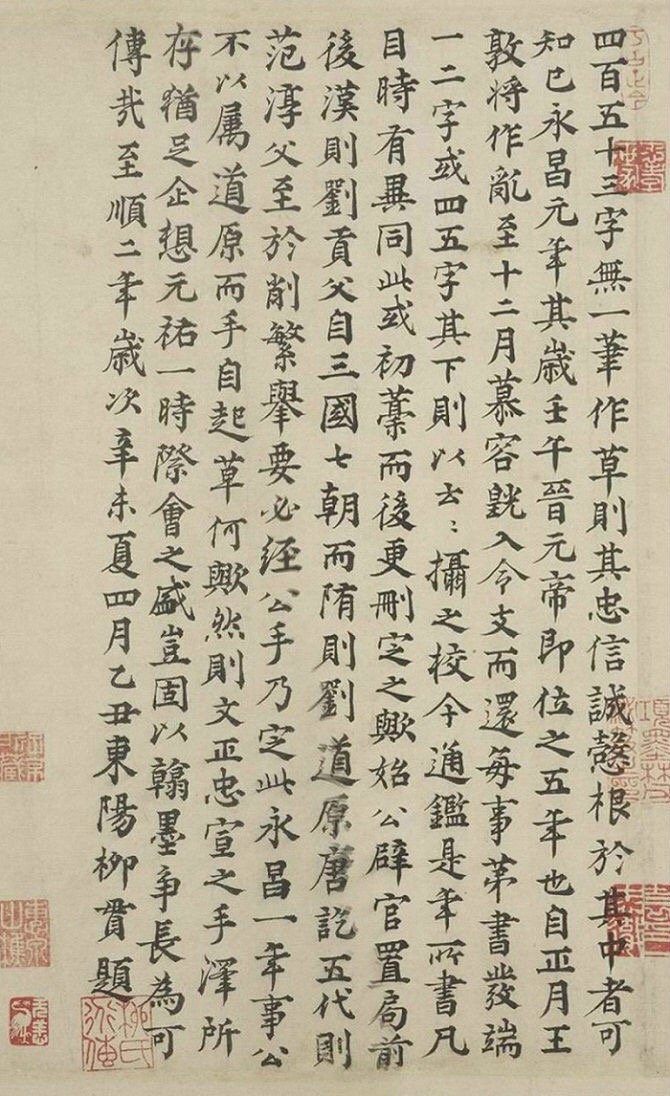 四百五十三字無一筆作草則其忠信誠愨根於其中者可
知已永昌元年其歲壬午晉元帝即位之五年也自正月王
敦將作亂至十二月慕容皝入令支而還每事第書發端
一二字或四五字其下則以云〻攝之校今通鑑是年所書凡
目時有異同此或初藁而後更刪定之歟始公辟官置局前
後漢則劉貢父自三國七朝而隋則劉道原唐訖五代則
范淳父至於削繁舉要必經公手乃定此永昌一年事公
不以屬道原而手自起草何歟然則文正忠宣之手澤所
存猶足企想元祐一時際會之盛豈固以翰墨爭長為可
傳哉至順二年歲次辛未夏四月乙丑東陽柳貫題
柳氏